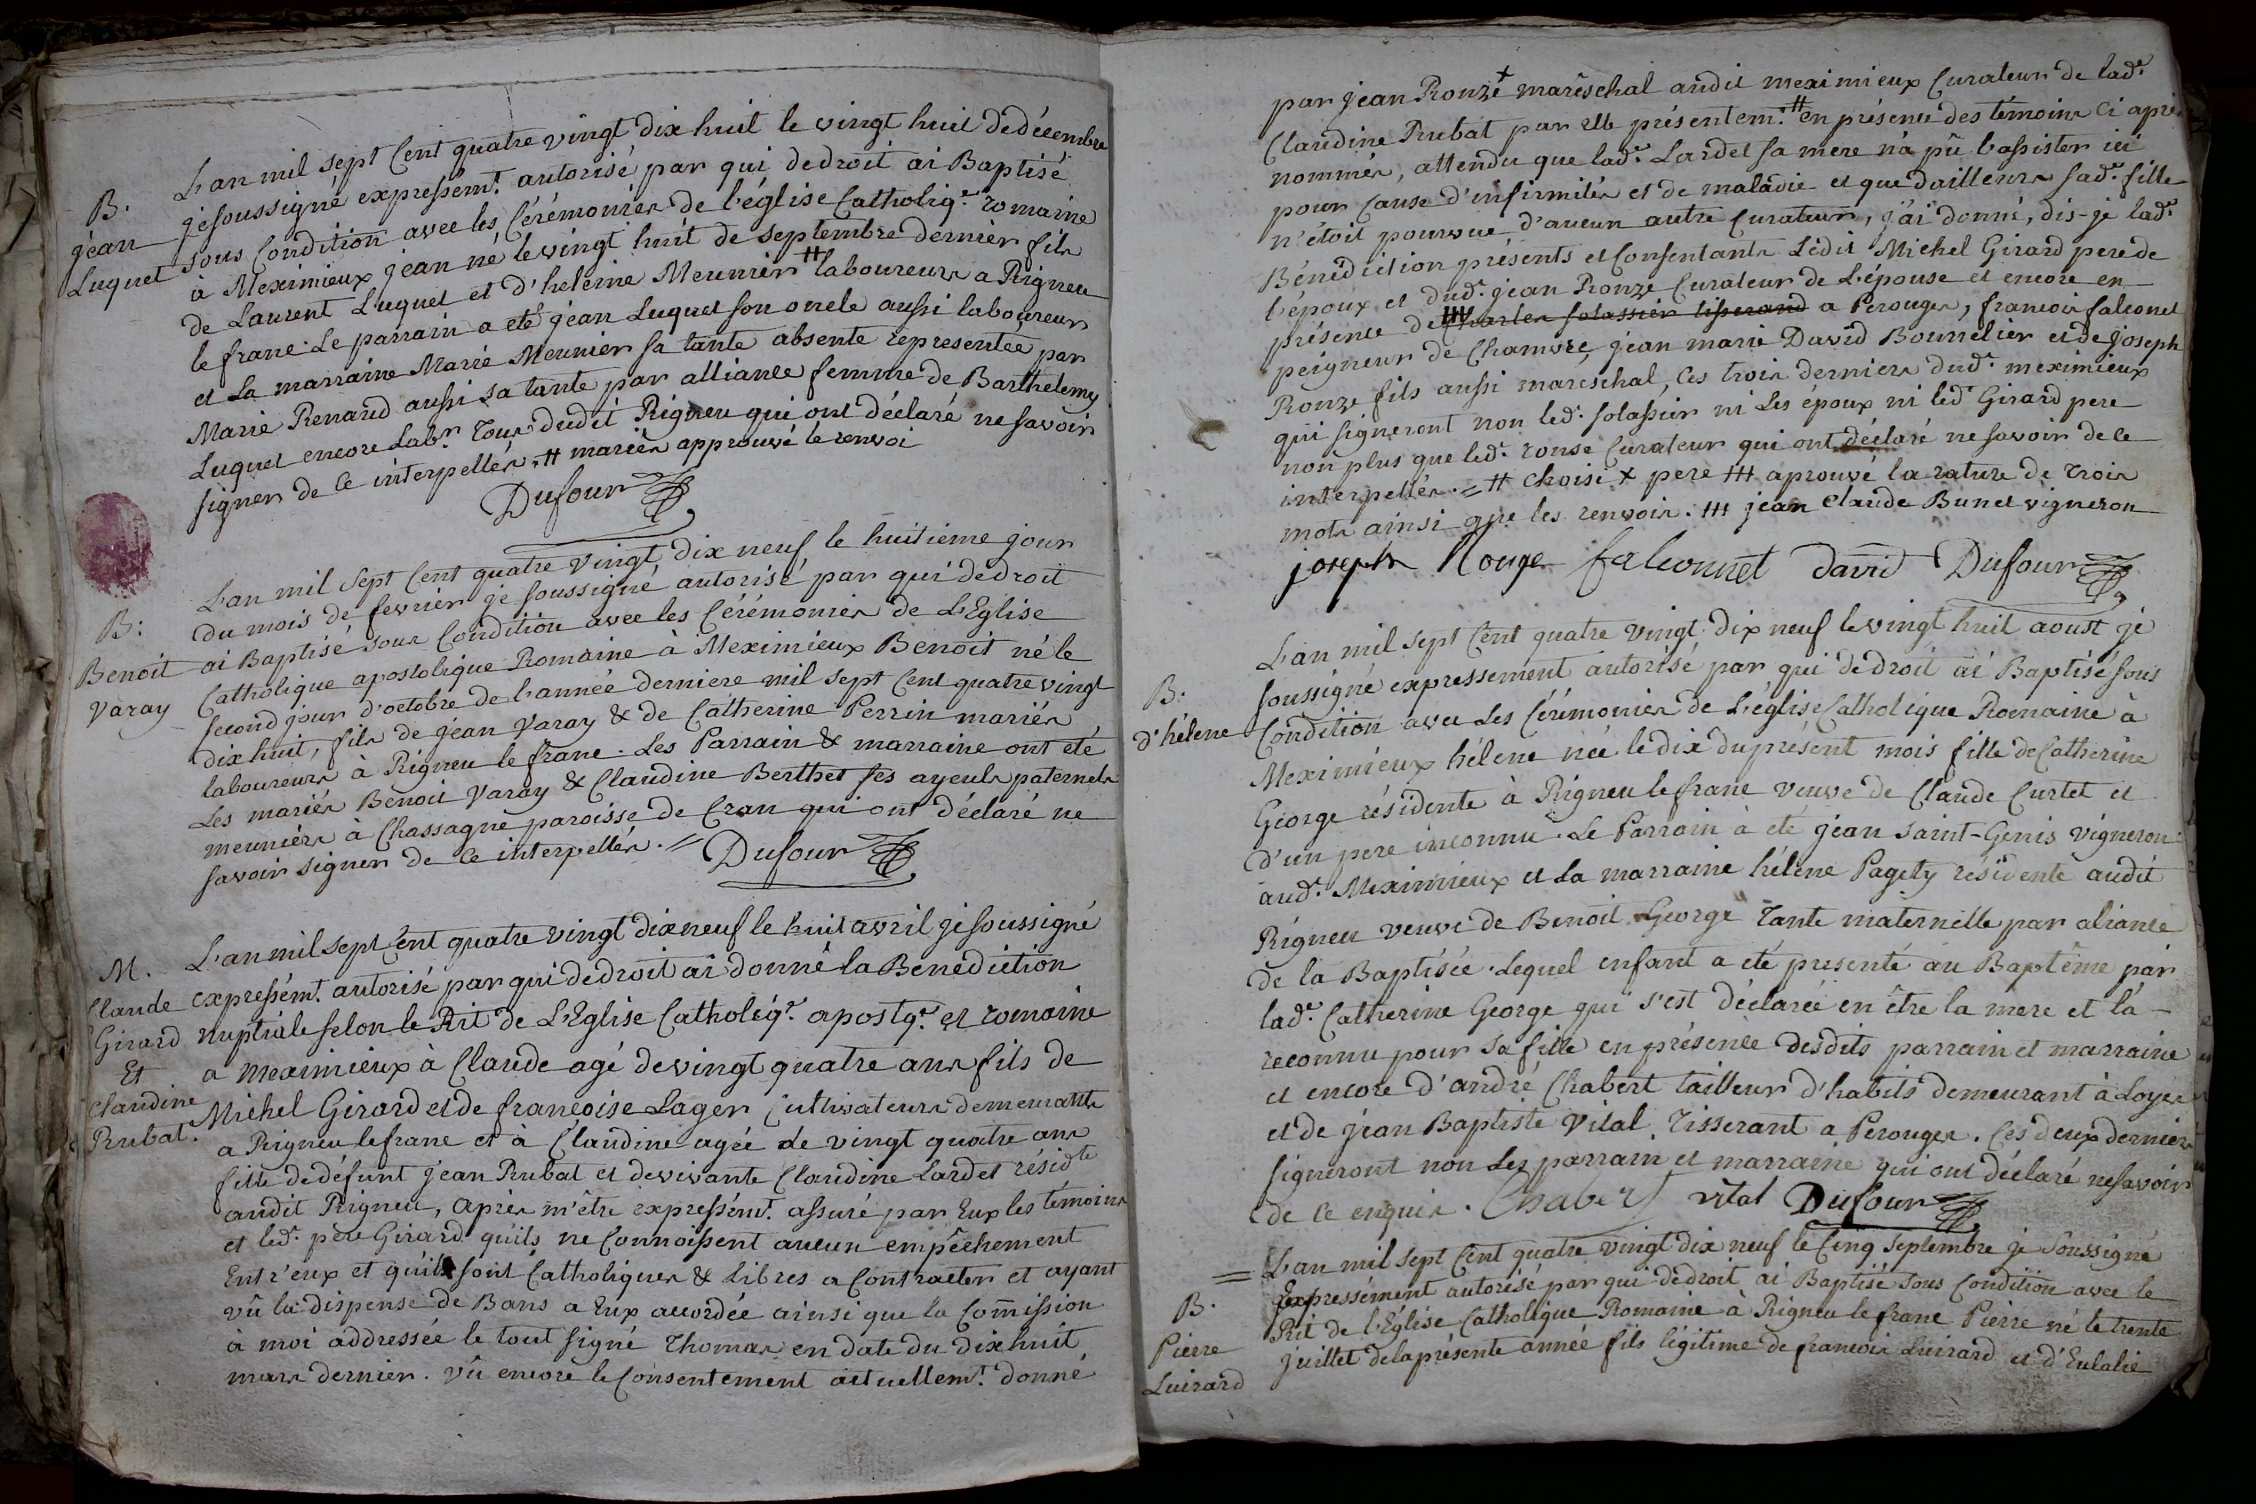 B.
jean
Luquet
L'an mil sept Cent quatre vingt dix huit le vingt huit de décembre
je soussigné expressem.t autorisé par qui de droit ai Baptisé
sous Condition avec les Cérémonies de l'église Catholiq.e romaine
à Meximieux jean né le vingt huit de septembre dernier fils
de Laurent Luquet et d'heleine Meunier # laboureurs a Rigneu
le franc. Le parrain a eté jean Luquet son oncle aussi laboureur
et La marraine Marie Meunier sa tante absente representée par
Marie Renard aussi sa tante par alliance femme de Barthelemy
Luquet encore Lab.r Tous dudit Rigneu qui ont déclaré ne savoir
signer de ce interpellés. # mariés approuvé le renvoi
Dufour
B:
Benoit
Varay
L'an mil sept Cent quatre vingt dix neuf le huitieme jour
du mois de fevrier je soussigné autorisé par qui de droit
ai Baptisé sous Condition avec les Cérémonies de L'Eglise
Catholique apostolique Romaine à Meximieux Benoit né le
second jour d'octobre de l'année derniere mil sept Cent quatre vingt
dix huit, fils de jean Varay & de Catherine Perrin mariés
laboureurs à Rigneu le franc. Les Parrain & marraine ont eté
Les mariés Benoit Varay & Claudine Berthet ses ayeuls paternels
meuniers à Chassagne paroisse de Cran qui ont déclaré ne
savoir signer de ce interpellés. =
Dufour
M.
Claude
Girard
Et
Claudine
Rubat.
L'an mil sept Cent quatre vingt dix neuf le huit avril je soussigné
expressém.t autorisé par qui de droit ai donné la Benediction
nuptiale selon le Rit de L'Eglise Catholiq.e apostq.e et romaine
a meximieux à Claude agé de vingt quatre ans fils de
Michel Girard et de francoise Lager Cultivateurs demeurants
a Rigneu le franc et à Claudine agée de vingt quatre ans
fille de défunt jean Rubat et de vivante Claudine Lardet résid.te
audit Rigneu, après m'être expressém.t assuré par Eux les témoins
et led.t pere Girard qu'ils ne Connoissent aucun empêchement
Entr'eux et quils sont Catholiques & Libres a Contracter et ayant
vû la dispense de Bans a Eux accordée ainsi que la Com̄ission
à moi addressée le tout signé Thomas en date du dix huit
mars dernier. vû encore le Consentement actuellem.t donné
par jean Ronze + mareschal audit meximieux Curateur de lad.e
Claudine Rubat par elle présentem.t # en présence des témoins ci après
nommés, attendu que lad.e Lardet sa mere n'a pû l'assister ici
pour cause d'infirmités et de maladie et que dailleurs sad.e fille
n'étoit pourvue d'aucun autre Curateur, j'ai donné, dis-je lad.e
Bénédiction présents et Consentants Ledit Michel Girard pere de
l'époux et dud.t jean Ronze Curateur de L'épouse et encore en
présence de ### Charles solassier tisserand a Perouges, francois falconet
peigneur de Chanvre, jean marie David Bourrelier et de joseph
Ronze fils aussi mareschal, Ces trois derniers dud.t meximieux
qui signeront non led.t solassier ni Les époux ni led.t Girard pere
non plus que led.t ronse Curateur qui ont déclaré ne savoir de ce
interpellés. = # choisi + pere ### aprouvé la rature de trois
mots ainsi que les renvois. ### jean Claude Bunet vigneron
joseph Ronze falconnet david Dufour
B.
d'hélene
L'an mil sept Cent quatre vingt dix neuf le vingt huit aoust je
soussigné expressement autorisé par qui de droit ai Baptisé sous
Condition avec Les Cérémonies de L'église Catholique Romaine à
Meximieux hélene née le dix du présent mois fille de Catherine
George résidente à Rigneu le franc veuve de Claude Curtet et
d'un pere inconnu. Le Parrain à eté jean saint-Genis vigneron
aud.t Meximieux et La marraine hélene Pagety résidente audit
Rigneu veuve de Benoit George Tante maternelle par aliance
de la Baptisée. Lequel enfant a eté presenté au Baptême par
lad.e Catherine George qui s'est déclarée en être la mere et l'a
reconnu pour sa fille en présence desdits parrain et marraine
et encore d'andré Chabert tailleur d'habits demeurant à Loyes
et de jean Baptiste Vital Tisserant a Perouges. Ces deux derniers
signeront non Les parrain et marraine qui ont déclaré ne savoir
de ce enquis. Chabert vital Dufour
B.
Pierre
Luirard
= L'an mil sept Cent quatre vingt dix neuf le Cinq septembre je soussigné
Expressément autorisé par qui de droit ai Baptisé sous Condition avec le
Rit de l'Église Catholique Romaine à Rigneu le franc Pierre né le trente
juillet de la présente année fils légitime de francois Luirard et d'Eulalie